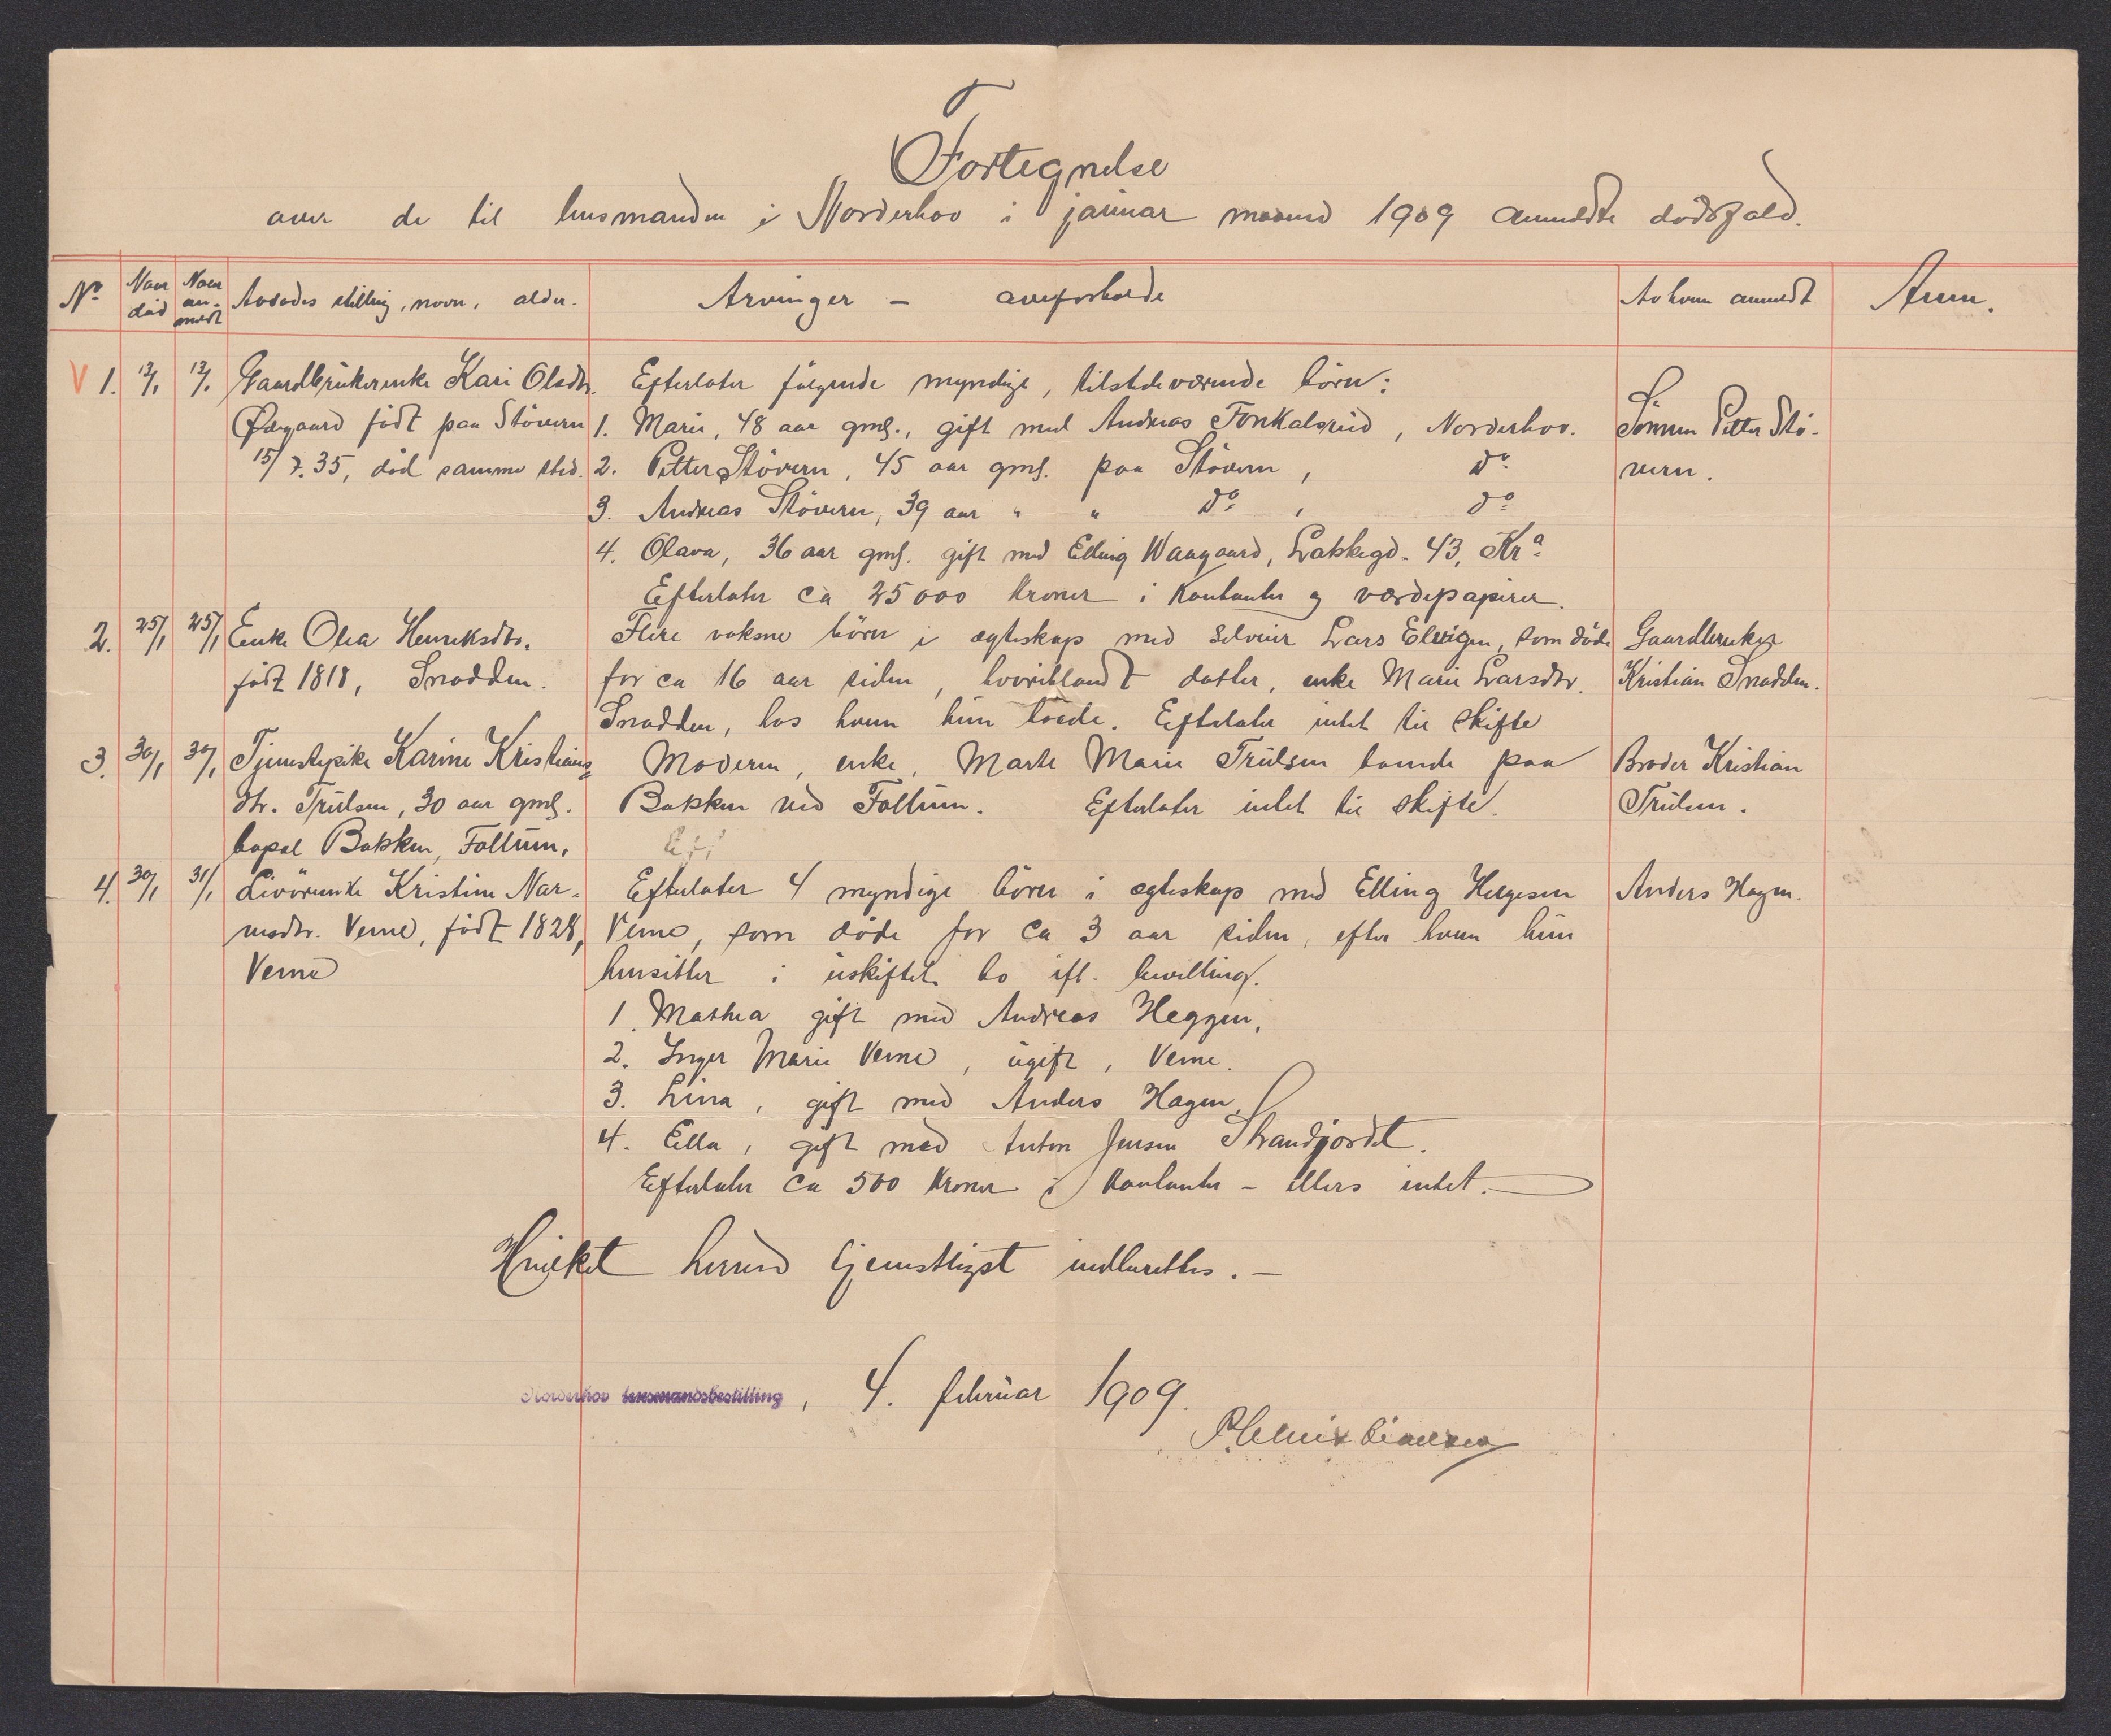 Fortegnelse
over de til lensmanden i Norderhov i januar maaned 1909 anmeldte dødsfald.
No Naar død Naar an-meldt Avdødes stilling, navn, alder. Arvinger - arveforholde Av hvem anmeldt Anm.
V 1. 12/1 12/1 Gaardbrukerenke Kari Olsdtr. Efterlater følgende myndige, tilstedeværende børn:
Ødegaard født paa Støvern 1. Marie, 48 aar gml., gift med Andreas Fonkalsrud, Norderhov. Sønnen Petter Stø-
15/7.35, død samme sted. 2. Petter Støvern, 45 aar gml. paa Støvern, do vern.
3. Andreas Støvern, 39 aar " " do , do
4. Olava, 36 aar gml. gift med Elling Waagaard, Lakkegd. 43, Kra
Efterlater ca 25000 kroner i kontanter og værdipapirer.
2. 25/1 25/1 Enke Olea Henriksdtr. Flere voksne børn i egteskap med selveier Lars Elvigen, som døde Gaardbruker
født 1818, Snadden. for ca 16 aar siden, hvoriblandt datter, enke Marie Larsdtr. Kristian Snadden.
Snadden, hos hvem hun boede. Efterlater intet til skifte
3. 30/1 30/1 Tjenestepike Karine Kristians- Moderen, enke, Marte Marie Trulsen boende paa Broder Kristian
dtr. Trulsen, 30 aar gml. Bakken ved Follum. Efterlater intet til skifte. Trulsen.
bopæl Bakken, Follum. Ef
4. 30/1 31/1 Livørenke Kristine Nar- Efterlater 4 myndige børn i egteskap med Elling Helgesen Anders Hagen.
vesdtr. Verne, født 1828, Verne, som døde for ca 3 aar siden, efter hvem hun
Verne hensitter i uskiftet bo ifl. bevilling.
1. Mathea gift med Andreas Heggen,
2. Inger Marie Verne, ugift, Verne.
3. Lina, gift med Anders Hagen,
4. Ella, gift med Anton Jensen Strandjordet.
Efterlater ca 500 kroner i kontanter - ellers intet.
Hvilket herved tjenstligst indberettes. -
Norderhov lensmandsbestilling, 4. februar 1909.